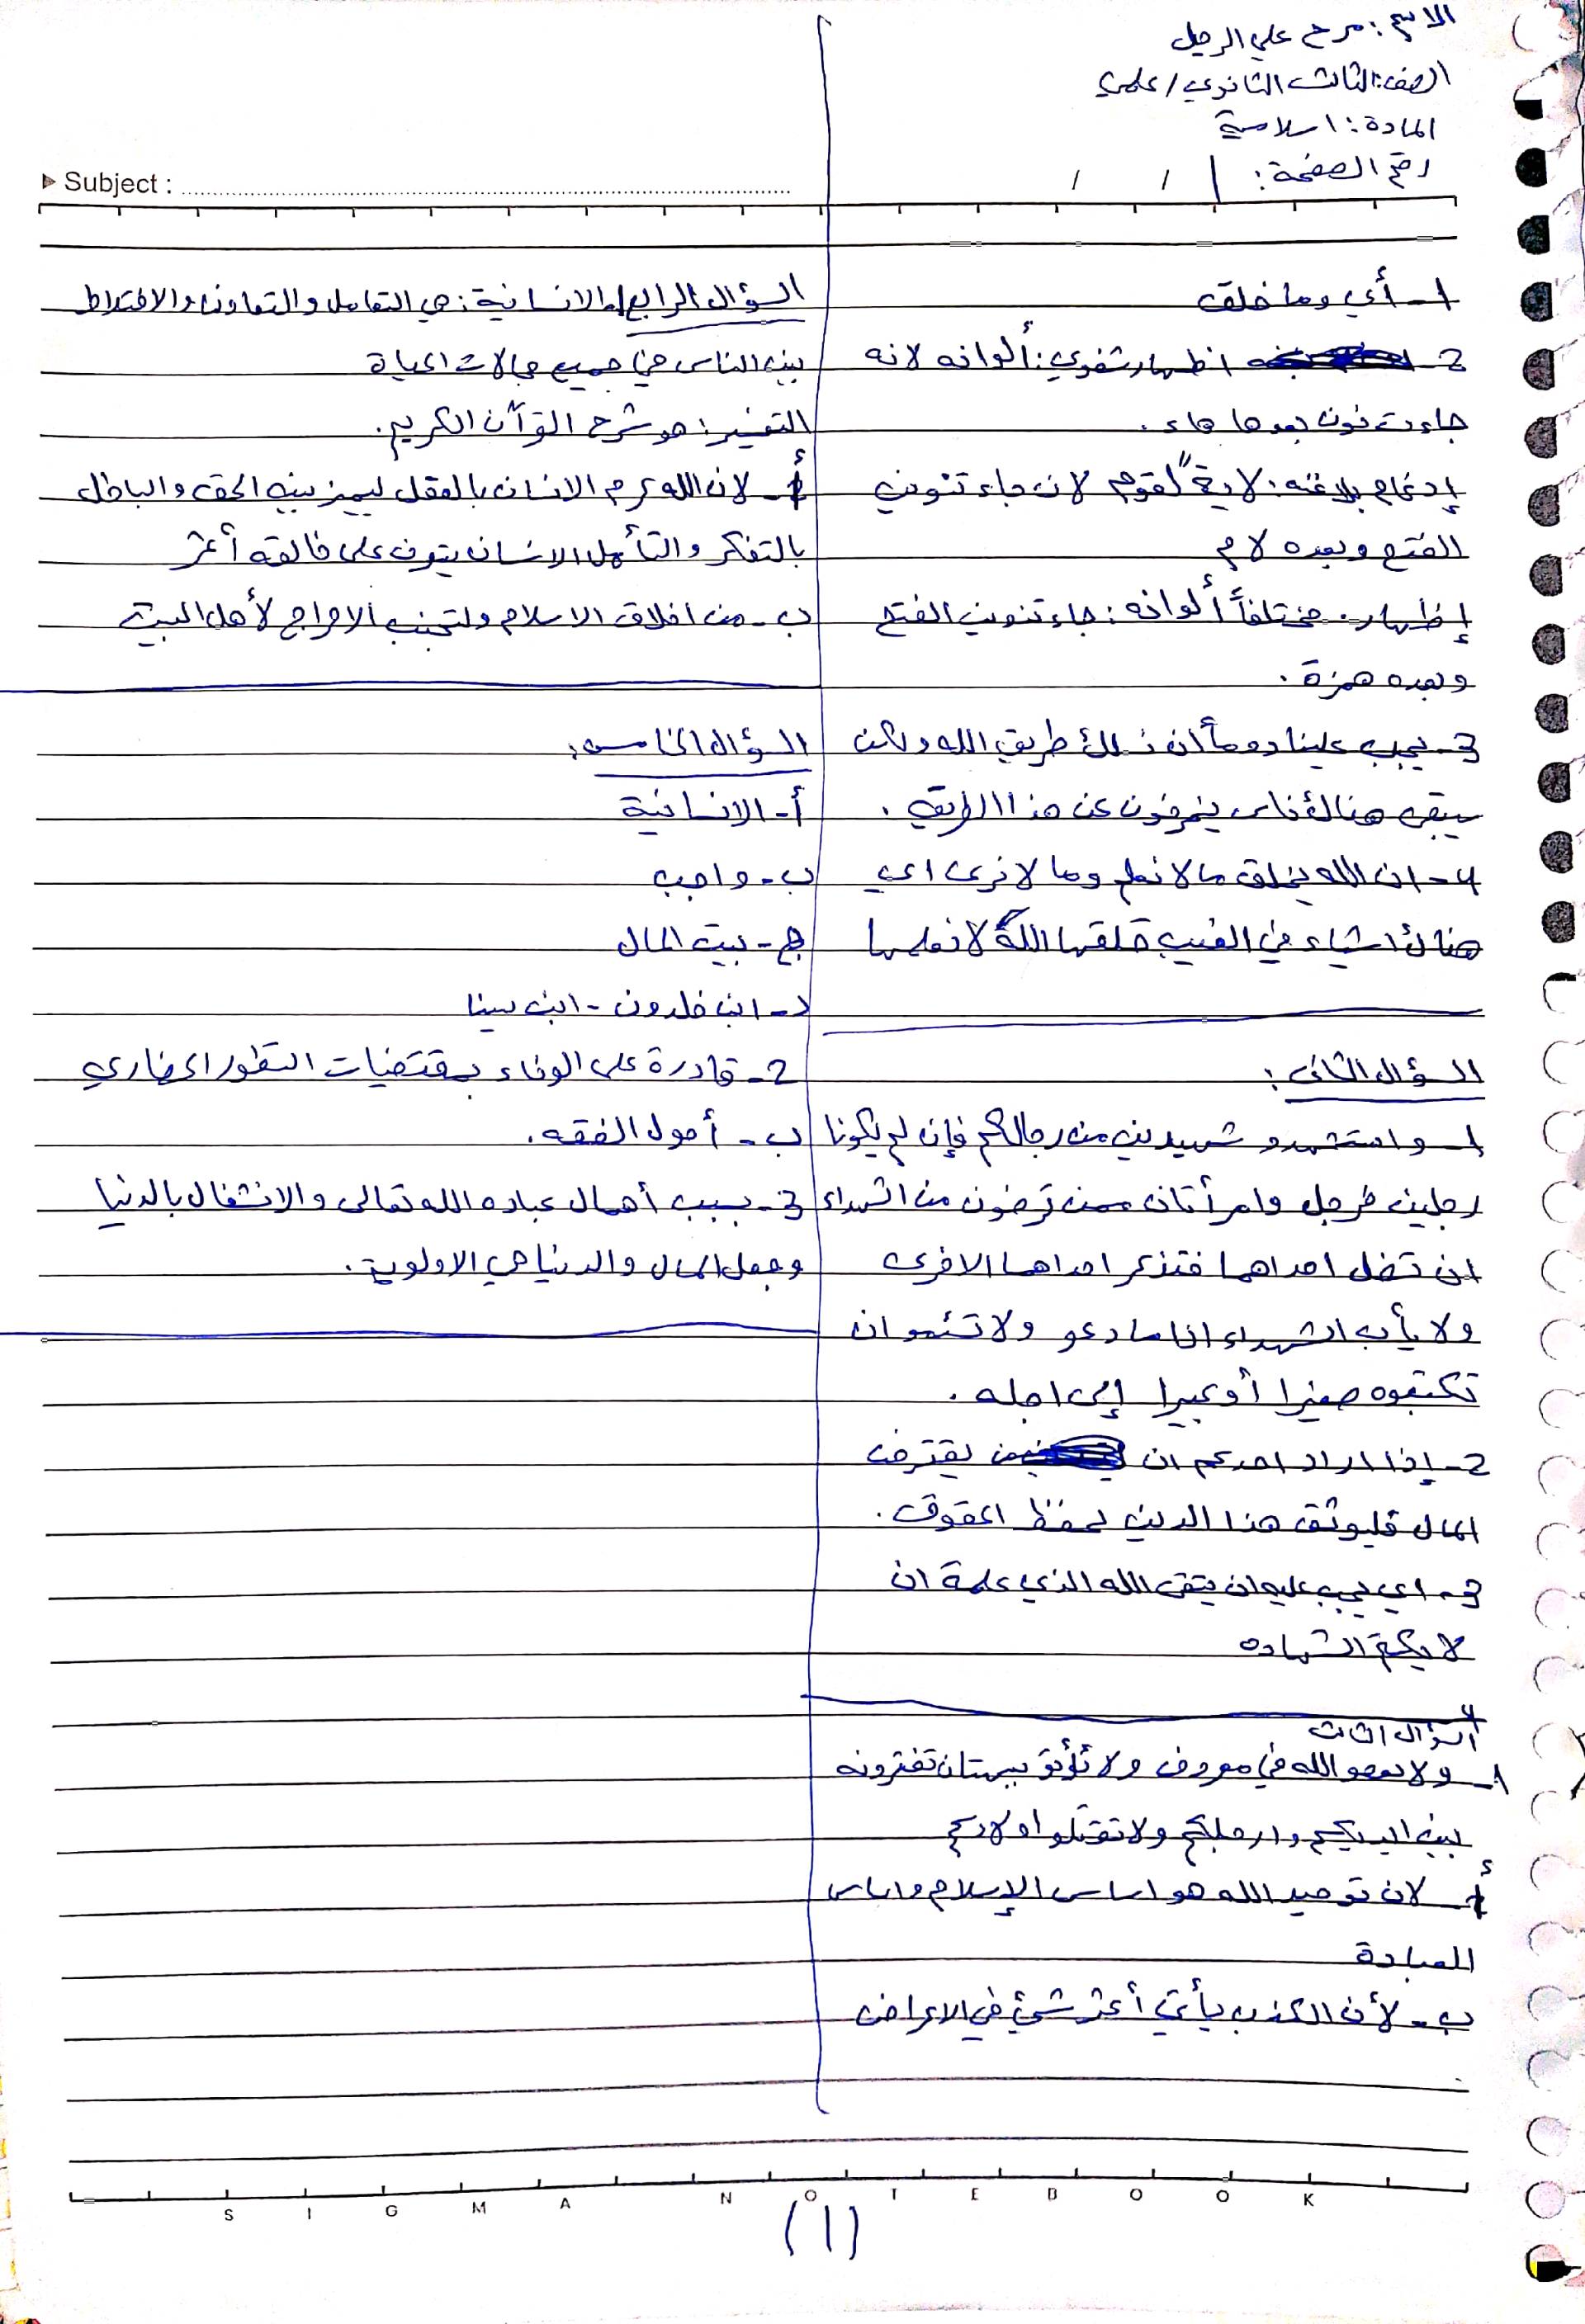 الاسم: مرح علي الرحيل
الصف: الثالث الثانوي / علمي
المادة: اسلامية
رقم الصفحة: ١
/ /
Subject :
1- أي وما خلق
2- اظهار شفوي: ألوانه لانه
جاءت نون بعدها هاء.
إدغام بلا غنه: لايةً لقوم لان جاء تنوين
الفتح وبعده لام
إظهار: مختلفاً ألوانه: جاء تنوين الفتح
وبعده همزة.
3- يجب علينا دوماً أن نسلك طريق الله ولكن
سيبقى هنالك ناس ينحرفون عن هذا الطريق.
4- ان الله يخلق ما لا نعلم وما لا نرى اي
هناك اشياء في الغيب خلقها الله لا نعلمها
السؤال الثاني:
1- واستشهدو شهيدين من رجالكم فإن لم يكونا
رجلين فرجل وامرأتان ممن ترضون من الشهداء
ان تضل احداهما فتذكر احداهما الاخرى
ولا يأب الشهداء اذا ما دعو ولا تسئمو ان
تكتبوه صغيرا أو كبيرا إلى اجله.
2- إذا اراد احدكم ان يقترض
المال فليوثق هذا الدين لحفظ الحقوق.
3- اي يجب عليه ان يتقي الله الذي علمة ان
لا يكتم الشهاده
السؤال الثالث
1- ولا تعصو الله في معروف ولا تأتو ببهتان تفترونه
بين ايديكم وارجلكم ولا تقتلو اولادكم
أ- لان توحيد الله هو اساس الإسلام واساس
العبادة
ب- لأن الكذب يأتي أكثر شيء في الاعراض
السؤال الرابع/ الانسانية: هي التعامل والتعاون والاختلاط
بين الناس في جميع مجالات الحياة
التفسير: هو شرح القرآن الكريم.
أ- لان الله كرم الانسان بالعقل ليميز بين الحق والباطل
بالتفكر والتأمل الانسان يتعرف على خالقه أكثر
ب- من اخلاق الاسلام ولتجنب الاحراج لأهل البيت
السؤال الخامس:
أ- الانسانية
ب- واجب
ج- بيت المال
د- ابن خلدون - ابن سينا
2- قادرة على الوفاء بمقتضيات التطور الحضاري
ب- أصول الفقه.
3- بسبب أهمال عباده الله تعالى والانشغال بالدنيا
وجعل المال والدنيا هي الاولوية.
SIGMA NOTEBOOK
(1)